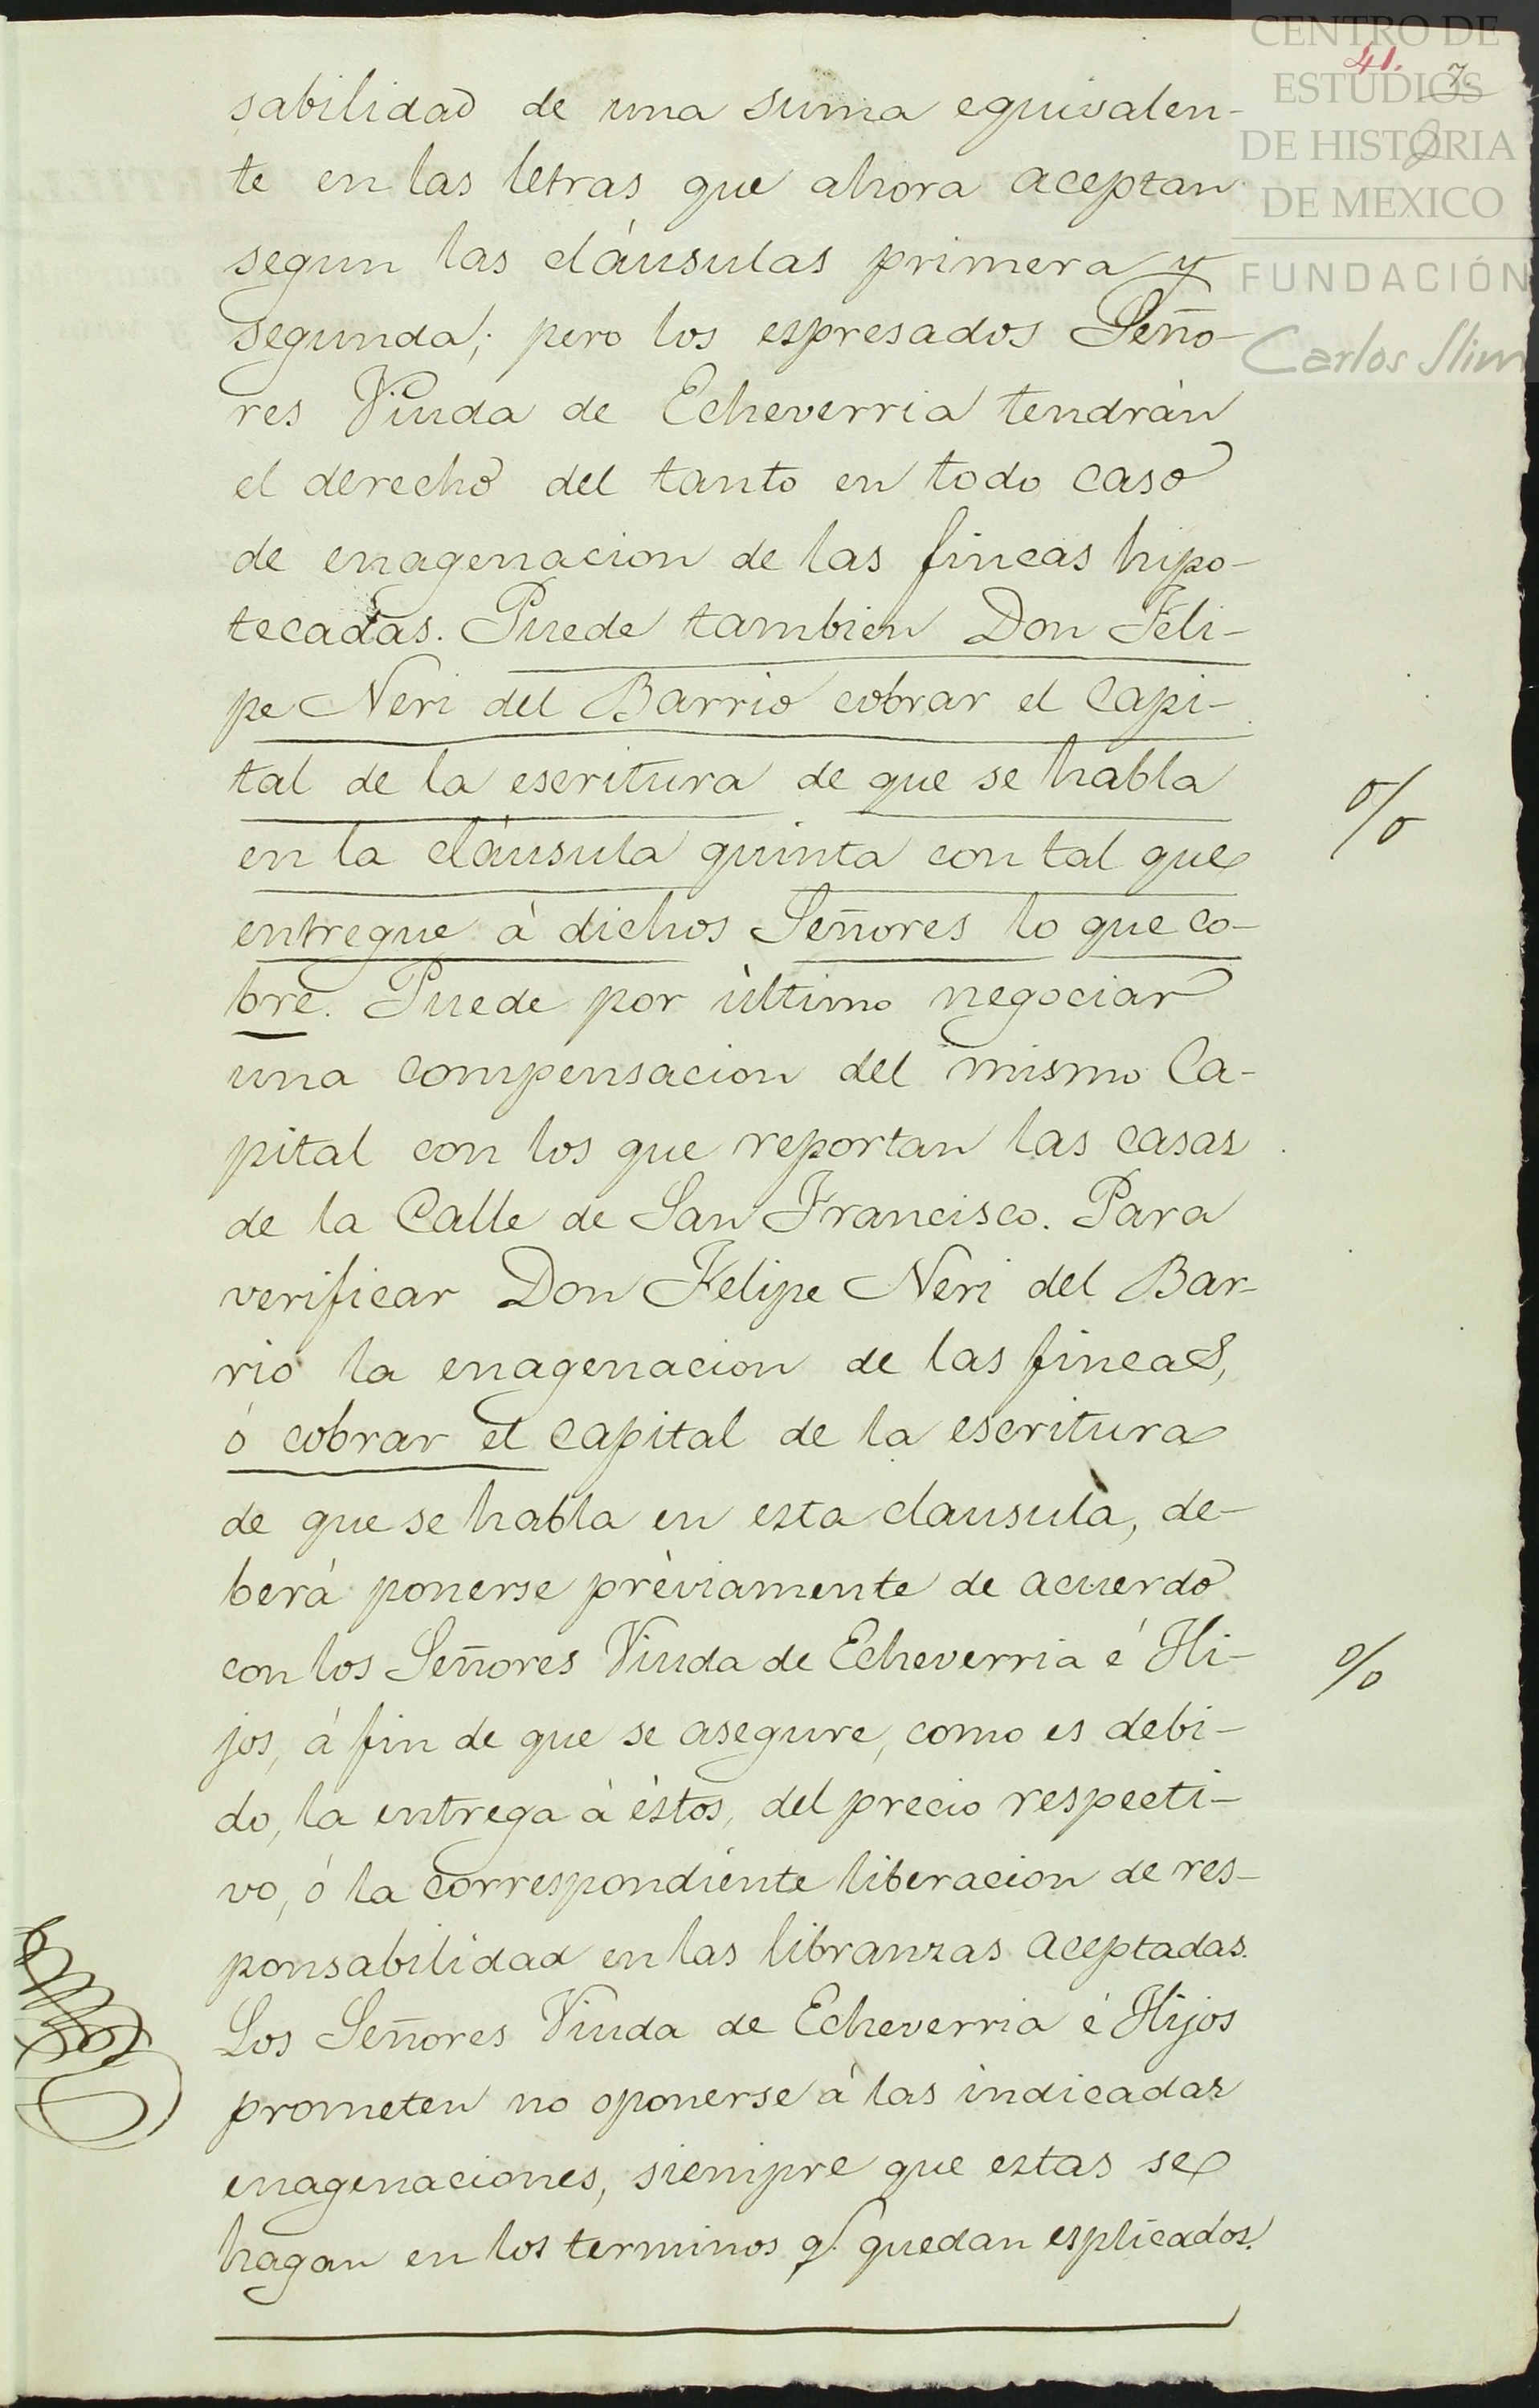 CENTRO DE
ESTUDIOS
DE HISTORIA
DE MEXICO
FUNDACIÓN
Carlos Slim
41.
7.
2
sabilidad de una suma equivalen-
te en las letras que ahora aceptan
segun las cláusulas primera y
segunda; pero los espresados Seño-
res Viuda de Echeverria tendrán
el derecho del tanto en todo caso
de enagenacion de las fincas hipo-
tecadas. Puede tambien Don Feli-
pe Neri del Barrio cobrar el Capi-
tal de la escritura de que se habla
en la cláusula quinta con tal que
entregue á dichos Señores lo que co-
bre. Puede por último negociar
una compensacion del mismo Ca-
pital con los que reportan las casas
de la Calle de San Francisco. Para
verificar Don Felipe Neri del Bar-
rio la enagenacion de las fincas,
ó cobrar el capital de la escritura
de que se habla en esta clausula, de-
berá ponerse préviamente de acuerdo
con los Señores Viuda de Echeverria é Hi-
jos, á fin de que se asegure, como es debi-
do, la entrega á éstos, del precio respecti-
vo, ó la correspondiente liberacion de res-
ponsabilidad en las libranzas aceptadas.
Los Señores Viuda de Echeverria é Hijos
prometen no oponerse á las indicadas
enagenaciones, siempre que estas se
hagan en los terminos q.ͤ quedan esplicados.
%
%